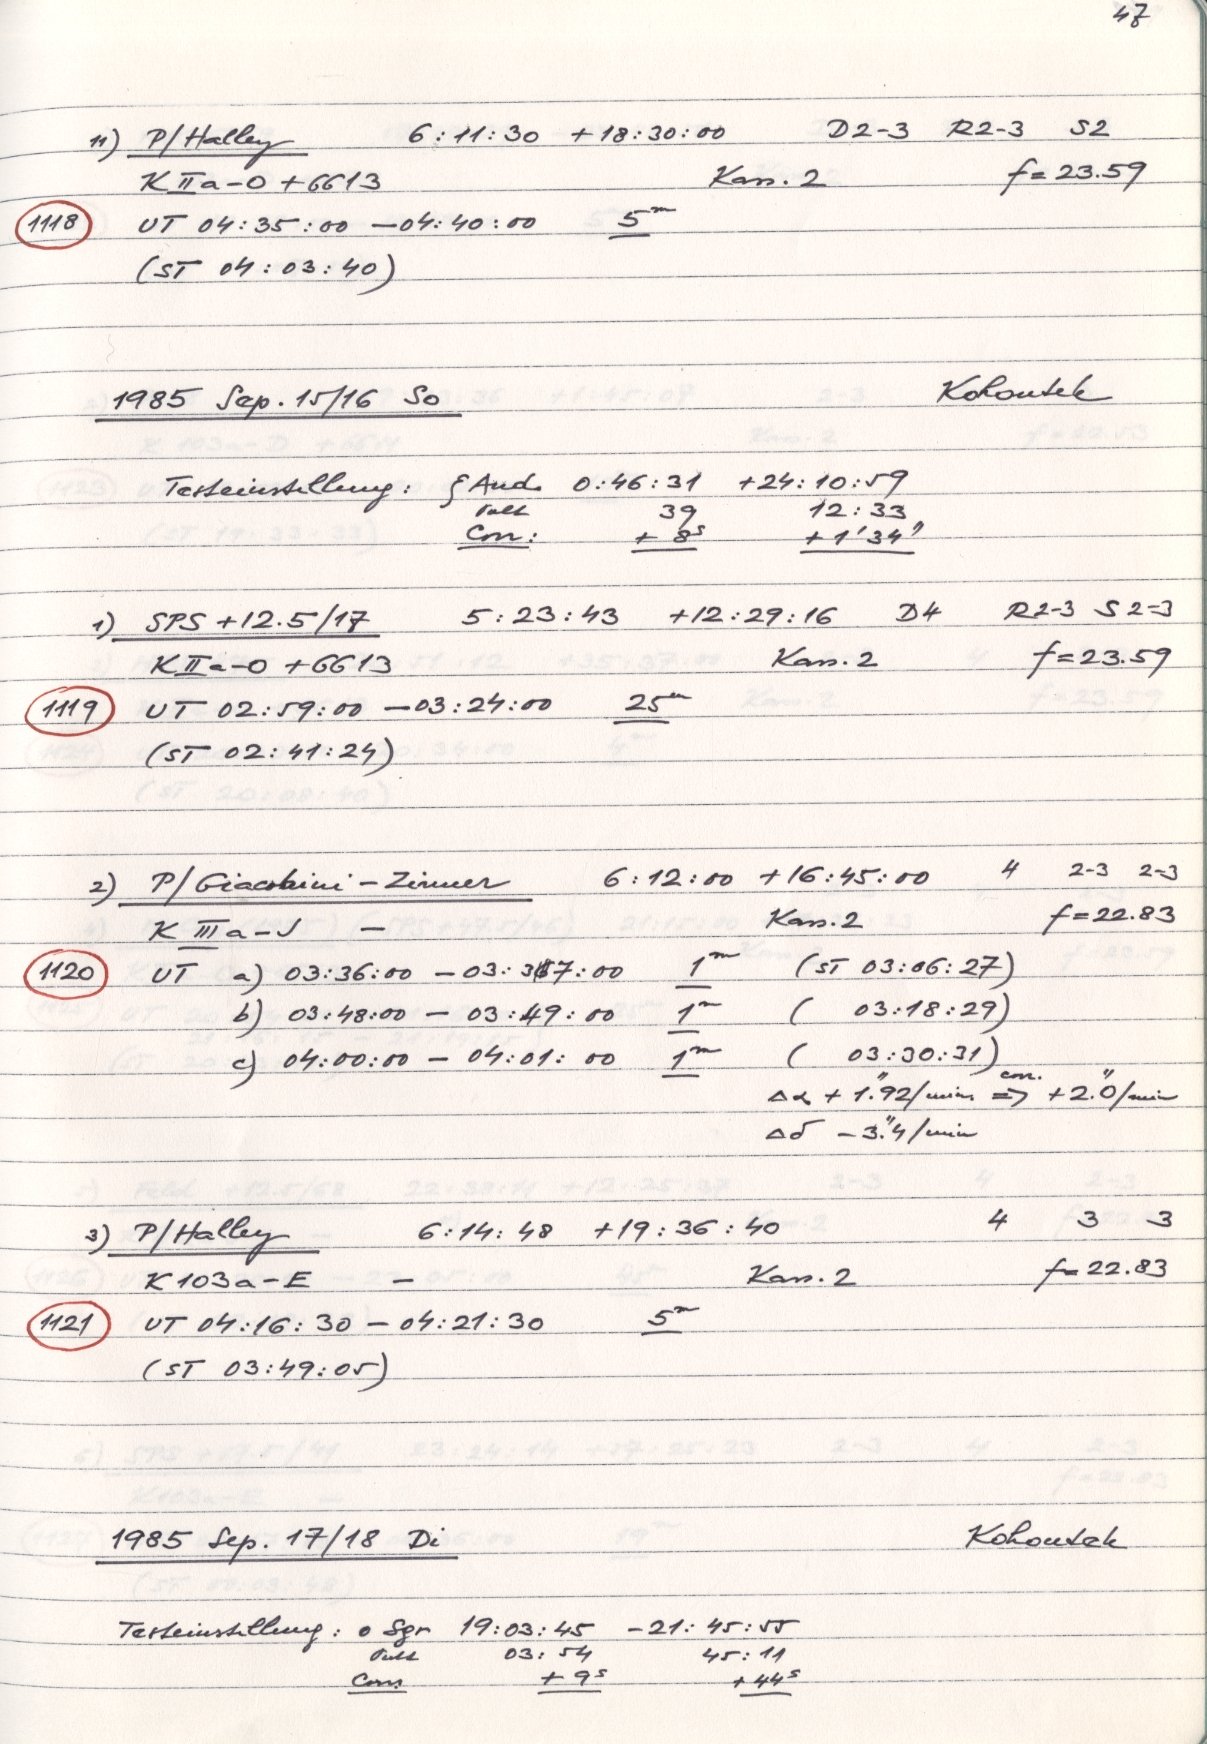 47
11) P/Halley 6:11:30 +18:30:00 D2-3 R2-3 S2
K IIa-O + 6613 Kass. 2 f = 23.59
1118 UT 04:35:00 - 04:40:00 5m
(ST 04:03:40)
1985 Sep. 15/16 So Kohoutek
Testeinstellung: ξ And. 0:46:31 +24:10:59
Pult 39 12:33
Corr: + 8s + 1'34"
1) SPS +12.5/17 5:23:43 +12:29:16 D4 R2-3 S2-3
K IIa-O + 6613 Kass. 2 f = 23.59
1119 UT 02:59:00 - 03:24:00 25m
(ST 02:41:24)
2) P/Giacobini-Zinner 6:12:00 +16:45:00 4 2-3 2-3
K IIIa-J - Kass. 2 f = 22.83
1120 UT a) 03:36:00 - 03:37:00 1m (ST 03:06:27)
b) 03:48:00 - 03:49:00 1m ( 03:18:29)
c) 04:00:00 - 04:01:00 1m ( 03:30:31)
Δα + 1."92/min corr. => +2."0/min
Δδ - 3."4/min
3) P/Halley 6:14:48 +19:36:40 4 3 3
K 103a-E - Kass. 2 f = 22.83
1121 UT 04:16:30 - 04:21:30 5m
(ST 03:49:05)
1985 Sep. 17/18 Di Kohoutek
Testeinstellung: o Sgr 19:03:45 -21:45:55
Pult 03:54 45:11
Corr. + 9s + 44s